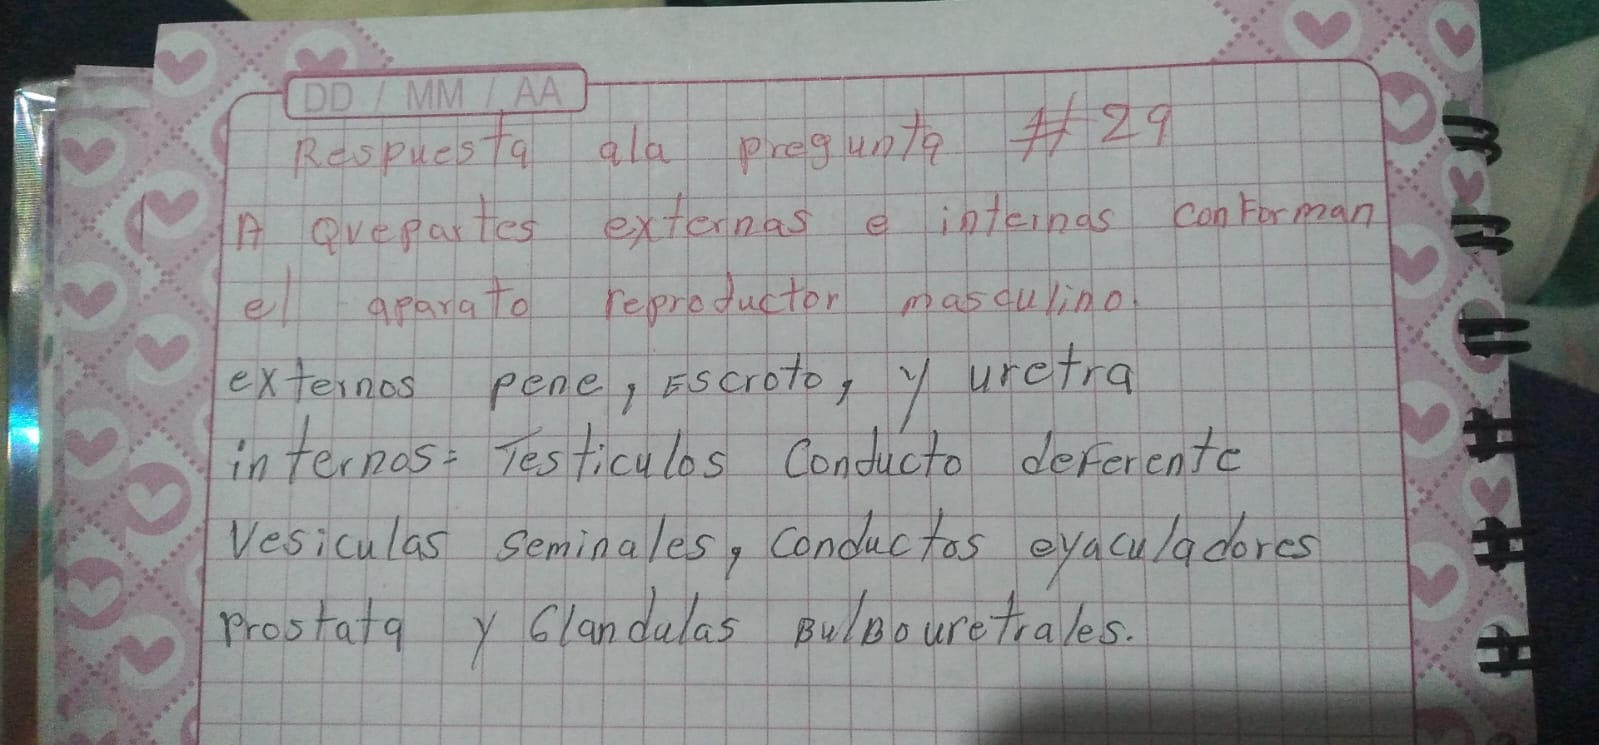 DD / MM / AA
Respuesta ala pregunta # 29
A Quepartes externas e internas conforman
el aparato reproductor masculino
externos pene, Escroto, y uretra
internos= Testiculos Conducto deferente
Vesiculas seminales, conductos eyaculadores
Prostata y Glandulas Bulbouretrales.